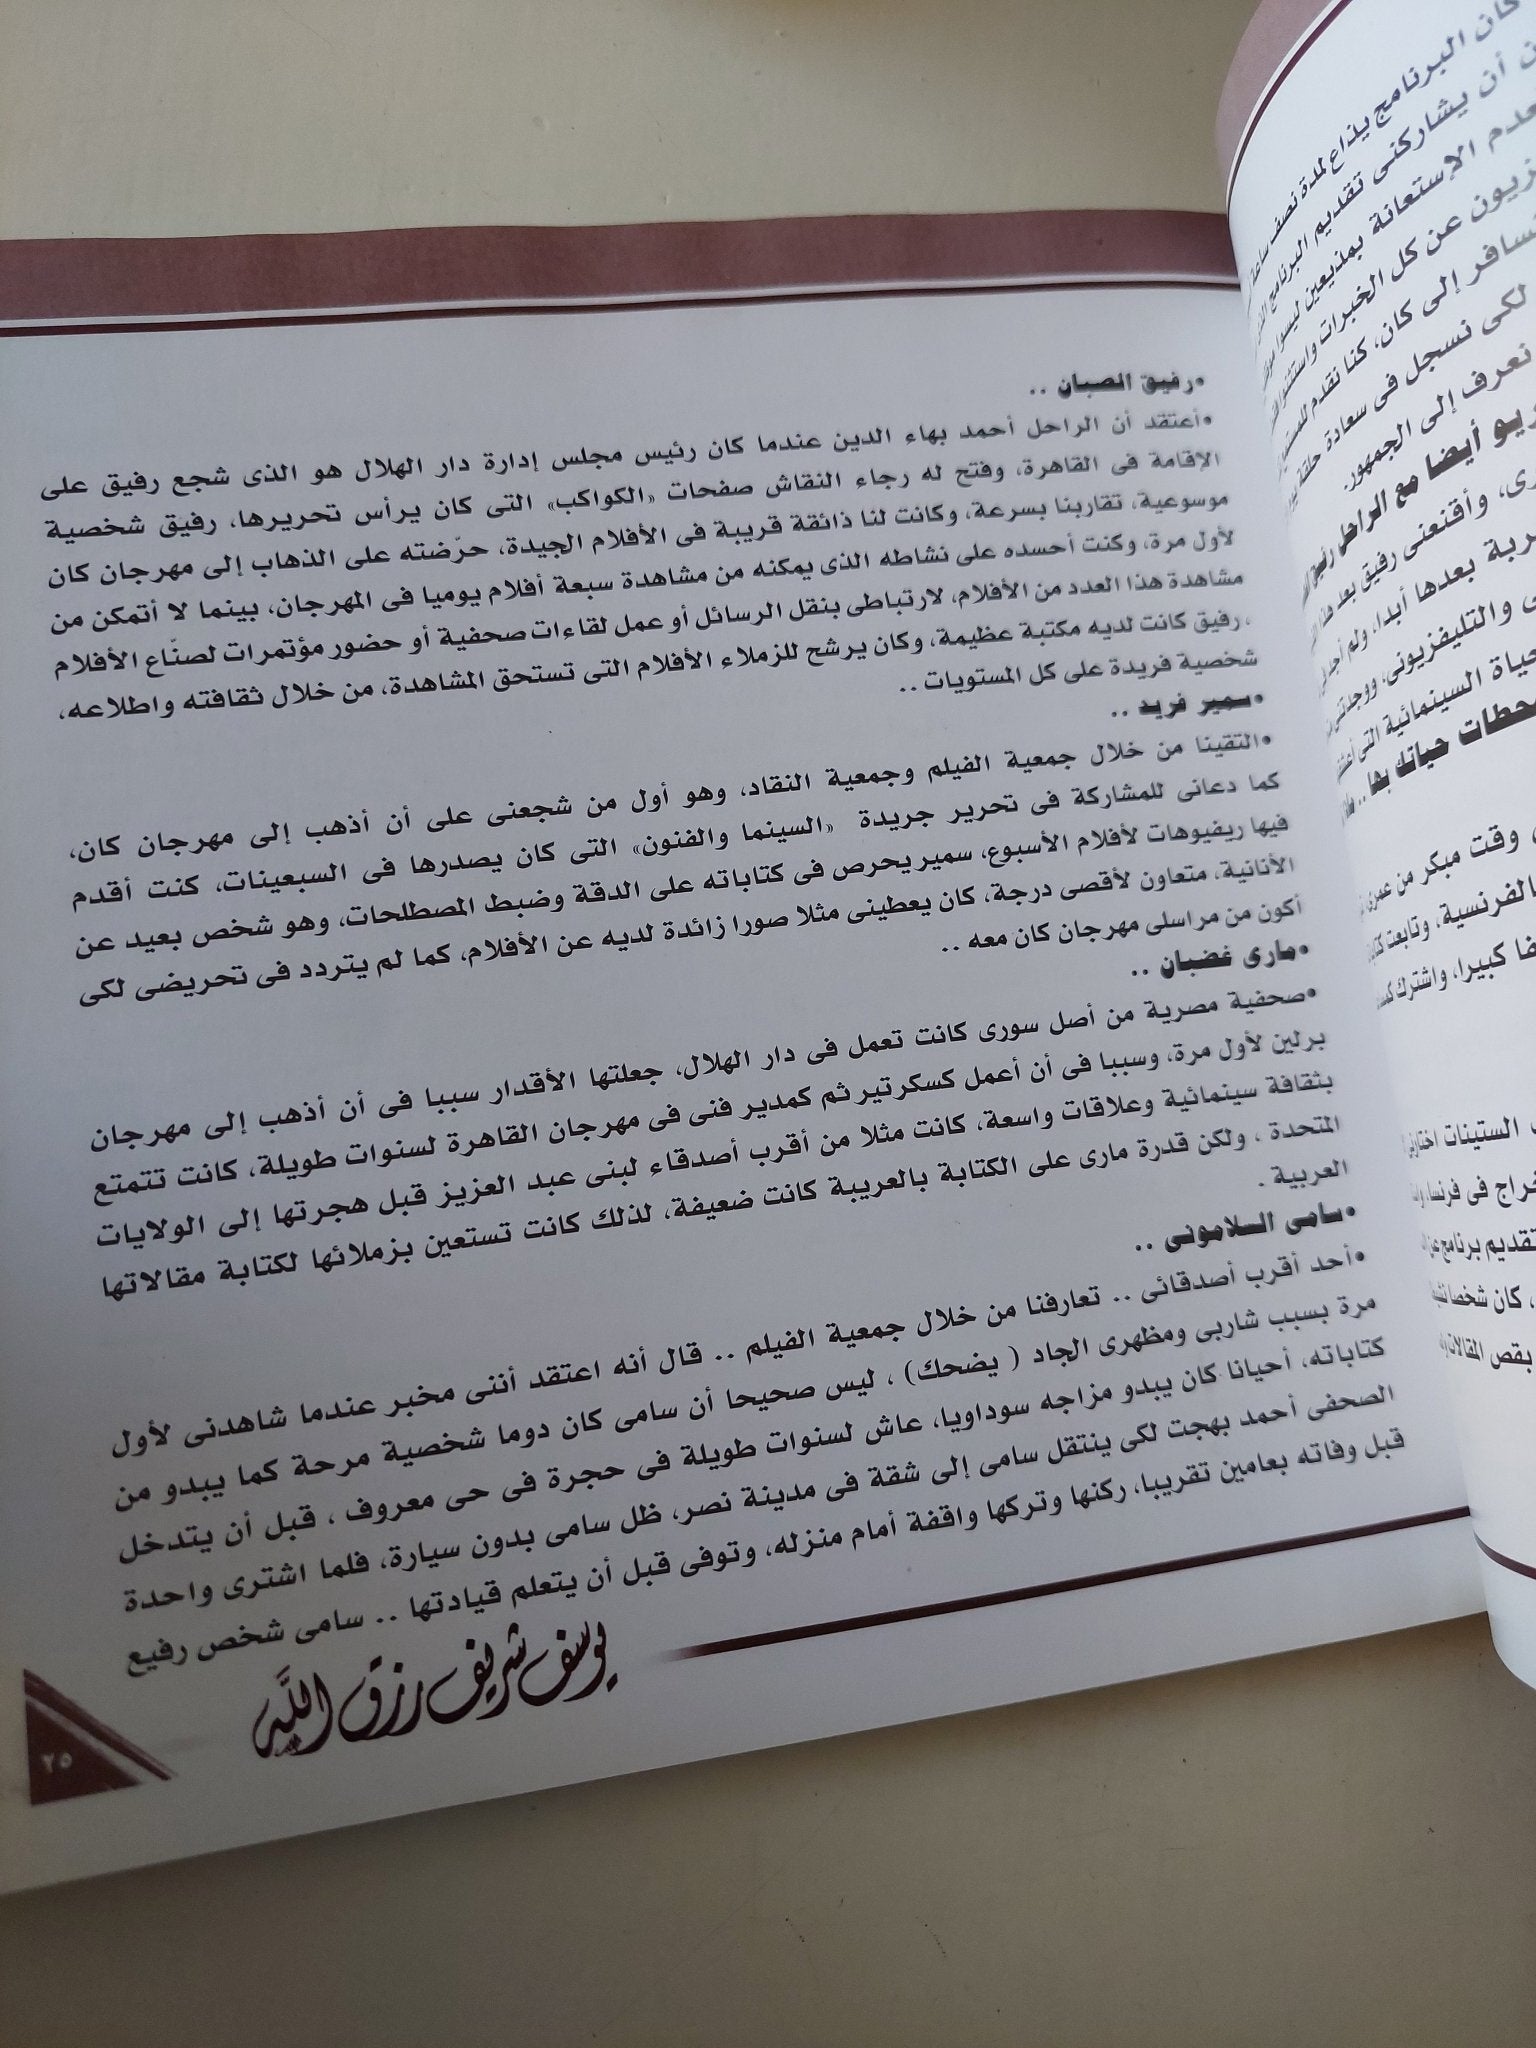 •رفيق الصبان ..
•أعتقد أن الراحل أحمد بهاء الدين عندما كان رئيس مجلس إدارة دار الهلال هو الذى شجع رفيق على
الإقامة فى القاهرة، وفتح له رجاء النقاش صفحات «الكواكب» التى كان يرأس تحريرها، رفيق شخصية
موسوعية، تقاربنا بسرعة، وكانت لنا ذائقة قريبة فى الأفلام الجيدة، حرّضته على الذهاب إلى مهرجان كان
لأول مرة، وكنت أحسده على نشاطه الذى يمكنه من مشاهدة سبعة أفلام يوميا فى المهرجان، بينما لا أتمكن من
مشاهدة هذا العدد من الأفلام، لارتباطى بنقل الرسائل أو عمل لقاءات صحفية أو حضور مؤتمرات لصنّاع الأفلام
، رفيق كانت لديه مكتبة عظيمة، وكان يرشح للزملاء الأفلام التى تستحق المشاهدة، من خلال ثقافته واطلاعه،
شخصية فريدة على كل المستويات ..
•سمير فريد ..
•التقينا من خلال جمعية الفيلم وجمعية النقاد، وهو أول من شجعنى على أن أذهب إلى مهرجان كان،
كما دعانى للمشاركة فى تحرير جريدة «السينما والفنون» التى كان يصدرها فى السبعينات، كنت أقدم
فيها ريفيوهات لأفلام الأسبوع، سمير يحرص فى كتاباته على الدقة وضبط المصطلحات، وهو شخص بعيد عن
الأنانية، متعاون لأقصى درجة، كان يعطينى مثلا صورا زائدة لديه عن الأفلام، كما لم يتردد فى تحريضى لكى
أكون من مراسلى مهرجان كان معه ..
•مارى غضبان ..
•صحفية مصرية من أصل سورى كانت تعمل فى دار الهلال، جعلتها الأقدار سببا فى أن أذهب إلى مهرجان
برلين لأول مرة، وسببا فى أن أعمل كسكرتير ثم كمدير فنى فى مهرجان القاهرة لسنوات طويلة، كانت تتمتع
بثقافة سينمائية وعلاقات واسعة، كانت مثلا من أقرب أصدقاء لبنى عبد العزيز قبل هجرتها إلى الولايات
المتحدة ، ولكن قدرة مارى على الكتابة بالعربية كانت ضعيفة، لذلك كانت تستعين بزملائها لكتابة مقالاتها
العربية .
•سامى السلامونى ..
•أحد أقرب أصدقائى .. تعارفنا من خلال جمعية الفيلم .. قال أنه اعتقد أننى مخبر عندما شاهدنى لأول
مرة بسبب شاربى ومظهرى الجاد ( يضحك) ، ليس صحيحا أن سامى كان دوما شخصية مرحة كما يبدو من
كتاباته، أحيانا كان يبدو مزاجه سوداويا، عاش لسنوات طويلة فى حجرة فى حى معروف ، قبل أن يتدخل
الصحفى أحمد بهجت لكى ينتقل سامى إلى شقة فى مدينة نصر، ظل سامى بدون سيارة، فلما اشترى واحدة
قبل وفاته بعامين تقريبا، ركنها وتركها واقفة أمام منزله، وتوفى قبل أن يتعلم قيادتها .. سامى شخص رفيع
يوسف شريف رزق الله
٢٥
كان البرنامج يذاع لمدة نصف ساعة
أن يشاركنى تقديم البرنامج
الإستعانة بمذيعين ليسوا
عن كل الخبرات واستثنوا
إلى كان، كنا نقدم
لكى نسجل فى سعادة حلقة
نعرف إلى الجمهور.
أيضا مع الراحل رفيق
وأقنعنى رفيق بعد هذا
بعدها أبدا، ولم أجد
والتليفزيونى، ووجدتنى
السينمائية التى
محطات حياتك بها ..
، وقت مبكر من عمرى
بالفرنسية، وتابعت
كبيرا، واشترك
الستينات اختارنى
فى فرنسا،
تقديم برنامج عن
، كان شخصا
بقص المقالات